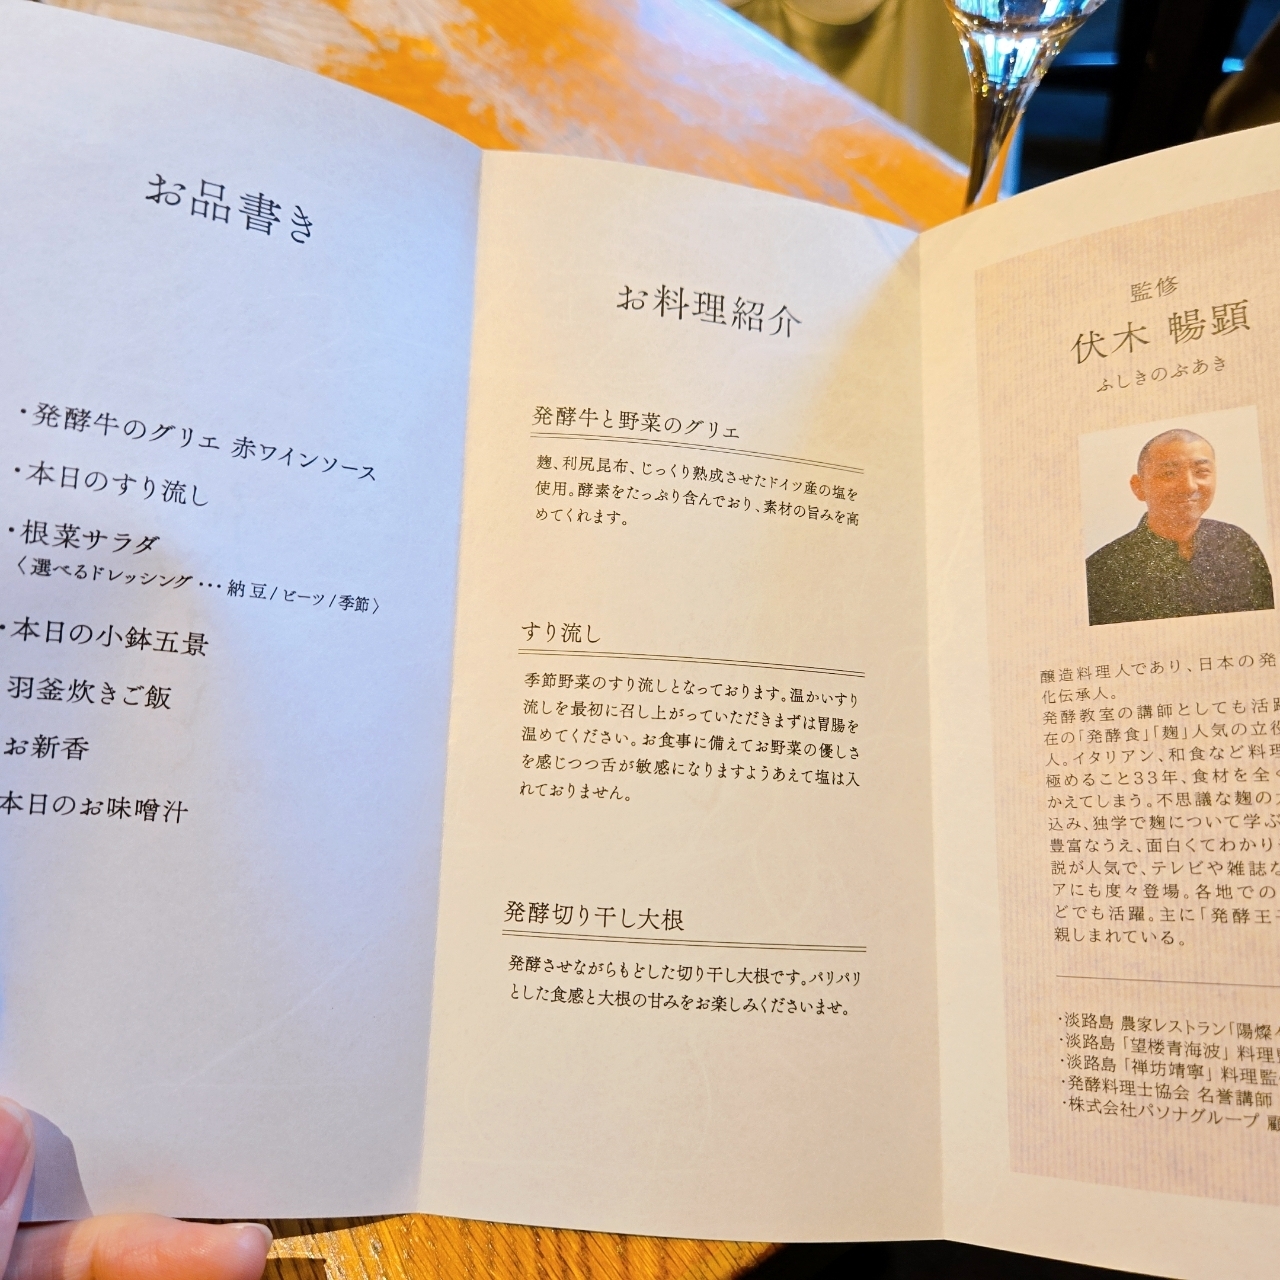 お品書き
・発酵牛のグリエ 赤ワインソース
・本日のすり流し
・根菜サラダ
〈選べるドレッシング…納豆/ビーツ/季節〉
・本日の小鉢五景
羽釜炊きご飯
お新香
本日のお味噌汁
お料理紹介
発酵牛と野菜のグリエ
麹、利尻昆布、じっくり熟成させたドイツ産の塩を
使用。酵素をたっぷり含んでおり、素材の旨みを高
めてくれます。
すり流し
季節野菜のすり流しとなっております。温かいすり
流しを最初に召し上がっていただきまずは胃腸を
温めてください。お食事に備えてお野菜の優しさ
を感じつつ舌が敏感になりますようあえて塩は入
れておりません。
発酵切り干し大根
発酵させながらもどした切り干し大根です。パリパリ
とした食感と大根の甘みをお楽しみくださいませ。
監修
伏木 暢顕
ふしきのぶあき
醸造料理人であり、日本の発
化伝承人。
発酵教室の講師としても活躍
在の「発酵食」「麹」人気の立役
人。イタリアン、和食など料理
極めること33年、食材を全く
かえてしまう。不思議な麹の
込み、独学で麹について学ぶ
豊富なうえ、面白くてわかり
説が人気で、テレビや雑誌な
アにも度々登場。各地での
どでも活躍。主に「発酵王子
親しまれている。
・淡路島 農家レストラン「陽燦
・淡路島「望楼青海波」料理監
・淡路島「禅坊靖寧」料理監
・発酵料理士協会 名誉講師
・株式会社パソナグループ 顧